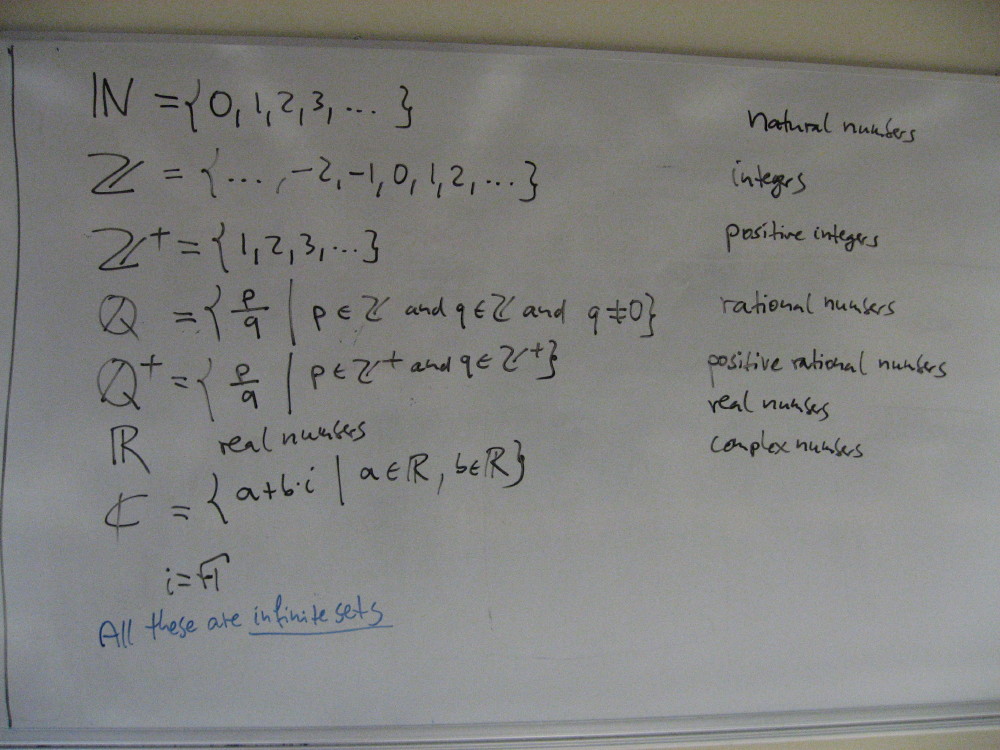 ℕ = {0, 1, 2, 3, ... } natural numbers
ℤ = {... , -2, -1, 0, 1, 2, ... } integers
ℤ⁺ = {1, 2, 3, ... } positive integers
ℚ = { p/q | p ∈ ℤ and q ∈ ℤ and q ≠ 0} rational numbers
ℚ⁺ = { p/q | p ∈ ℤ⁺ and q ∈ ℤ⁺} positive rational numbers
ℝ real numbers real numbers
ℂ = { a+b·i | a ∈ ℝ, b ∈ ℝ} complex numbers
i = √-1
All these are infinite sets